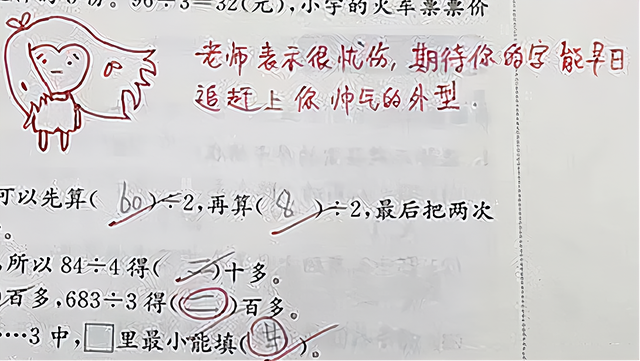 96÷3=32(元),小宇的火车票票价
老师表示很忧伤,期待你的字能早日
追赶上你帅气的外型.
可以先算(60)÷2,再算(8)÷2,最后把两次
。
所以84÷4得(二)十多。
百多,683÷3得(二)百多。
……3中,□里最小能填()。